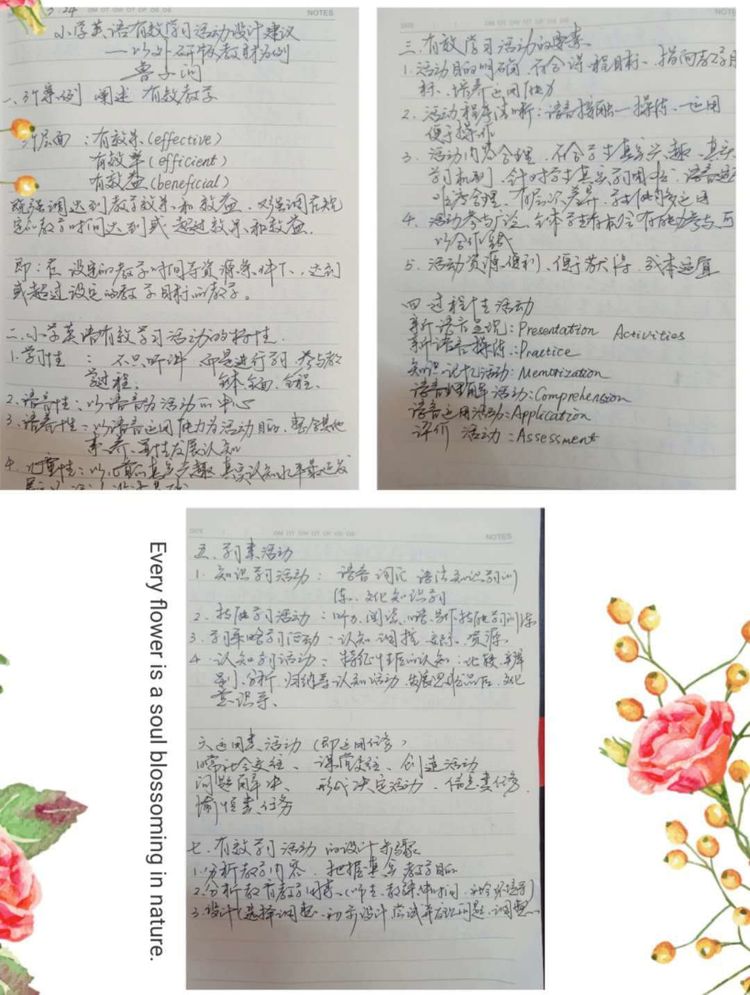 3.24
NOTES
小学英语有效学习活动设计建议
——以外研版教材为例
鲁子问
一、引导例 阐述 有效教学
层面：有效果（effective）
有效率（efficient）
有效益（beneficial）
既强调达到教学效果和效益，又强调在规
定的教学时间达到或超过效果和效益。
即：在设定的教学时间等资源条件下，达到
或超过设定的教学目标的教学。
二、小学英语有效学习活动的特性
1. 学习性：不只听讲 而是进行学习，参与教
学过程， 全体 全面、全程、
2. 语言性：以语言为活动的中心
3. 语养性：以语言运用能力为活动目的，整合其他
素养、 发展认知
4. 儿童性：以儿童的真实兴趣 真实认知水平最近发
NOTES
三、有效学习活动的要素
1. 活动目的明确，符合课程目标、指向教学目
标、培养运用能力
2. 活动程序清晰：语言接触—操练—运用
便于操作
3. 活动内容合理，符合学生真实兴趣、真实
学习机制，针对学生真实学习困难，语言适
难合理，有层次、差异，学生能够运用
4. 活动参与广泛，全体学生有机会有能力参与，可
以合作
5. 活动资源便利，便于获得，成本适宜
四、过程性活动
新语言呈现：Presentation Activities
新语言操练：Practice
知识记忆活动：Memorization
语言理解活动：Comprehension
语言运用活动：Application
评价 活动：Assessment
NOTES
五、学习类活动
1. 知识学习活动：语音 词汇 语法知识学习训
练、文化知识学习
2. 技能学习活动：听力、阅读、口语、写作技能学习训练
3. 学习策略学习活动：认知 调控 交际、资源
4. 认知学习活动：特征性的认知：比较、辨
别、分析、归纳等认知活动，发展思维品质、文化
意识等、
六、运用类活动（即运用任务）
日常社会交往、课堂交往、创造活动
问题解决、形成决定活动、信息类任务、
愉悦类任务
七、有效学习活动的设计步骤
1. 分析教学内容，把握真实教学目的
2. 分析教育教学因素（师生、教学时间、社会环境等）
3. 设计（选择调整、初步设计 尝试并发现问题、调整
Every flower is a soul blossoming in nature.